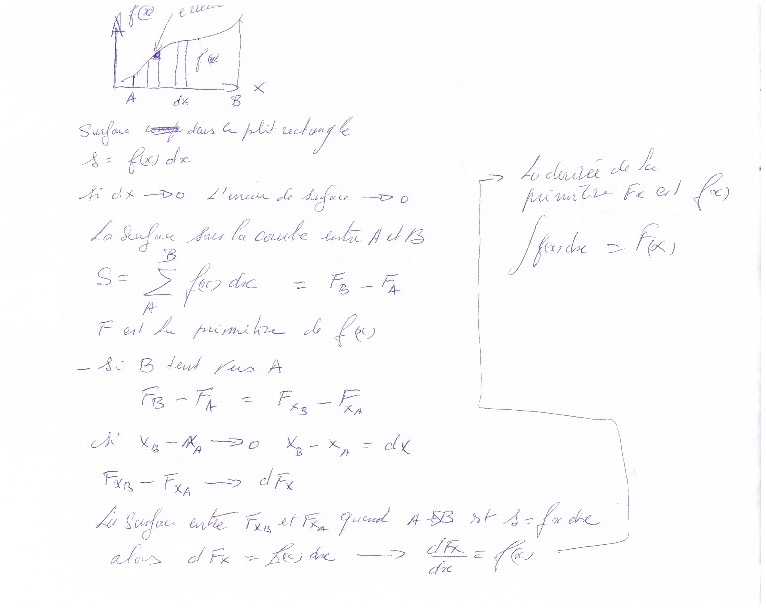 f(x) erreur
f(x)
A dx B x
Surface dans le ptit rectangle
s = f(x) dx
si dx → 0 L'erreur de surface → 0
La surface sous la courbe entre A et B
S = ∑ f(x) dx = F_B - F_A
B
A
F est la primitive de f(x)
- si B tent vers A
F_B - F_A = F_{x_B} - F_{x_A}
si x_B - x_A → 0 x_B - x_A = dx
F_{x_B} - F_{x_A} → dFx
La surface entre F_{x_B} et F_{x_A} quand A → B est s = fx dx
alors dFx = f(x) dx → dFx/dx = f(x)
→ La derivée de la
primitive Fx est f(x)
∫ f(x) dx = F(x)